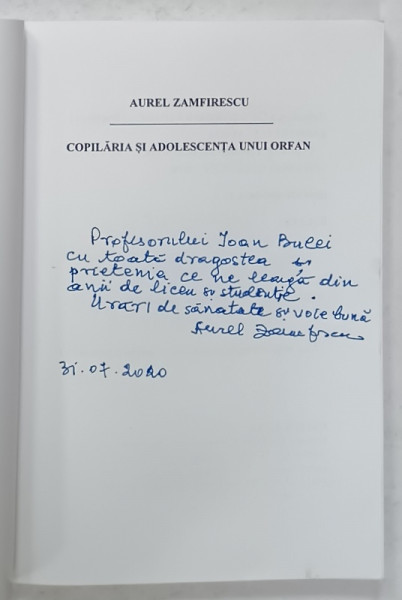 AUREL ZAMFIRESCU
COPILĂRIA ȘI ADOLESCENȚA UNUI ORFAN
Profesorului Ioan Bulei
cu toată dragostea și
prietenia ce ne leagă din
anii de liceu și studenție.
Urări de sănătate și voie bună
Aurel Zamfirescu
31.07.2020